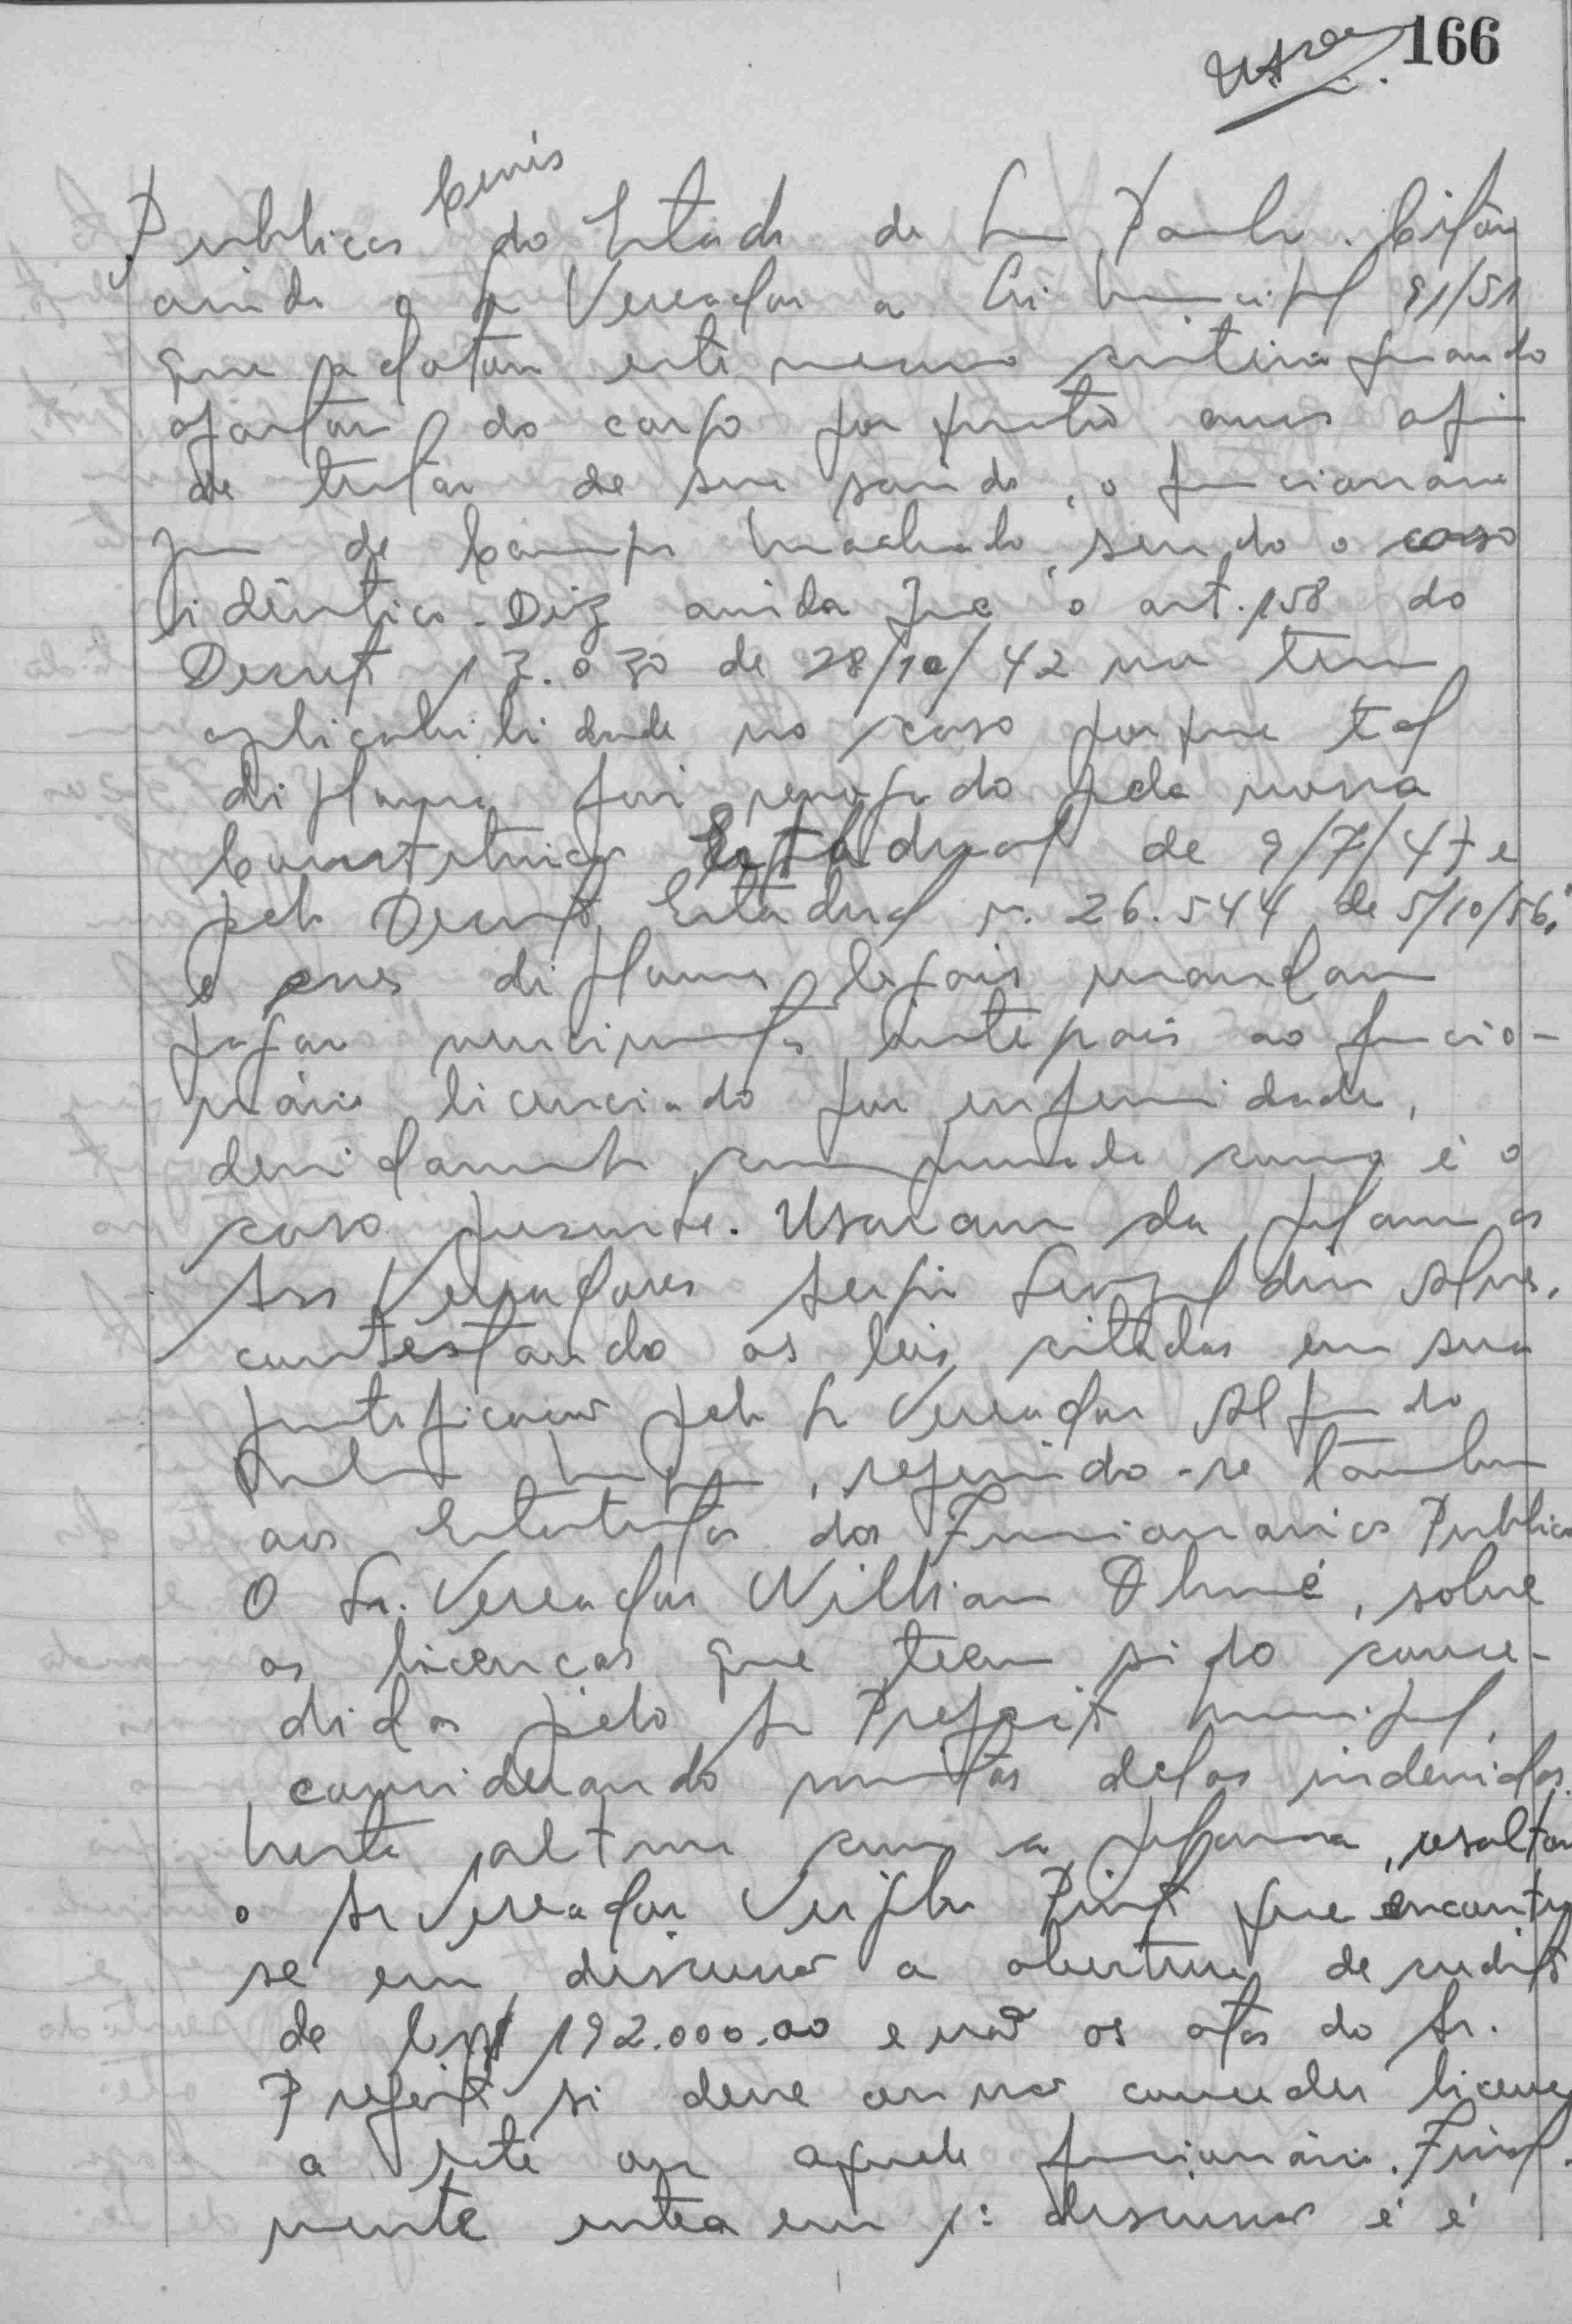 166
Civis
Publicos do Estado de São Paulo. Citou
ainda o Sr Vereador a Lei Municipal 91/51
que adotou este mesmo criterio quando
afastou do cargo por quatro anos afim
de tratar de sua saúde, o funcionario
de Campos Machado, sendo o caso
idêntico. Diz ainda que o art. 158 do
Decreto 13.030 de 28/10/42 não tem
aplicabilidade no caso porque tal
diploma foi revogado pela nova
Constituição Estadual de 9/7/47 e
pelo Decreto Estadual n. 26.544 de 5/10/56.
e esses diplomas legais mandam
pagar vencimentos integrais ao funcio-
nário licenciado por enfermidade,
devidamente comprovada como é o
caso presente. Usaram da palavra os
Srs Vereadores Sergio Alves,
contestando as leis citadas em sua
justificação pelo Sr Vereador
, referindo-se também
aos Estatutos dos Funcionarios Publicos
O Sr. Vereador Willian Ohmé, sobre
as licenças que teem sido conce-
didas pelo Sr Prefeito Municipal,
considerando muitas delas indevidas.
Nesta altura com a palavra, resaltou
o Sr Vereador Pinto que encontra
se em discussão a abertura de credito
de Cr$ 192.000.00 e não os atos do Sr.
Prefeito si deve ou não conceder licença
a este ou aquele funcionário. Final-
mente entra em 1ª discussão é é